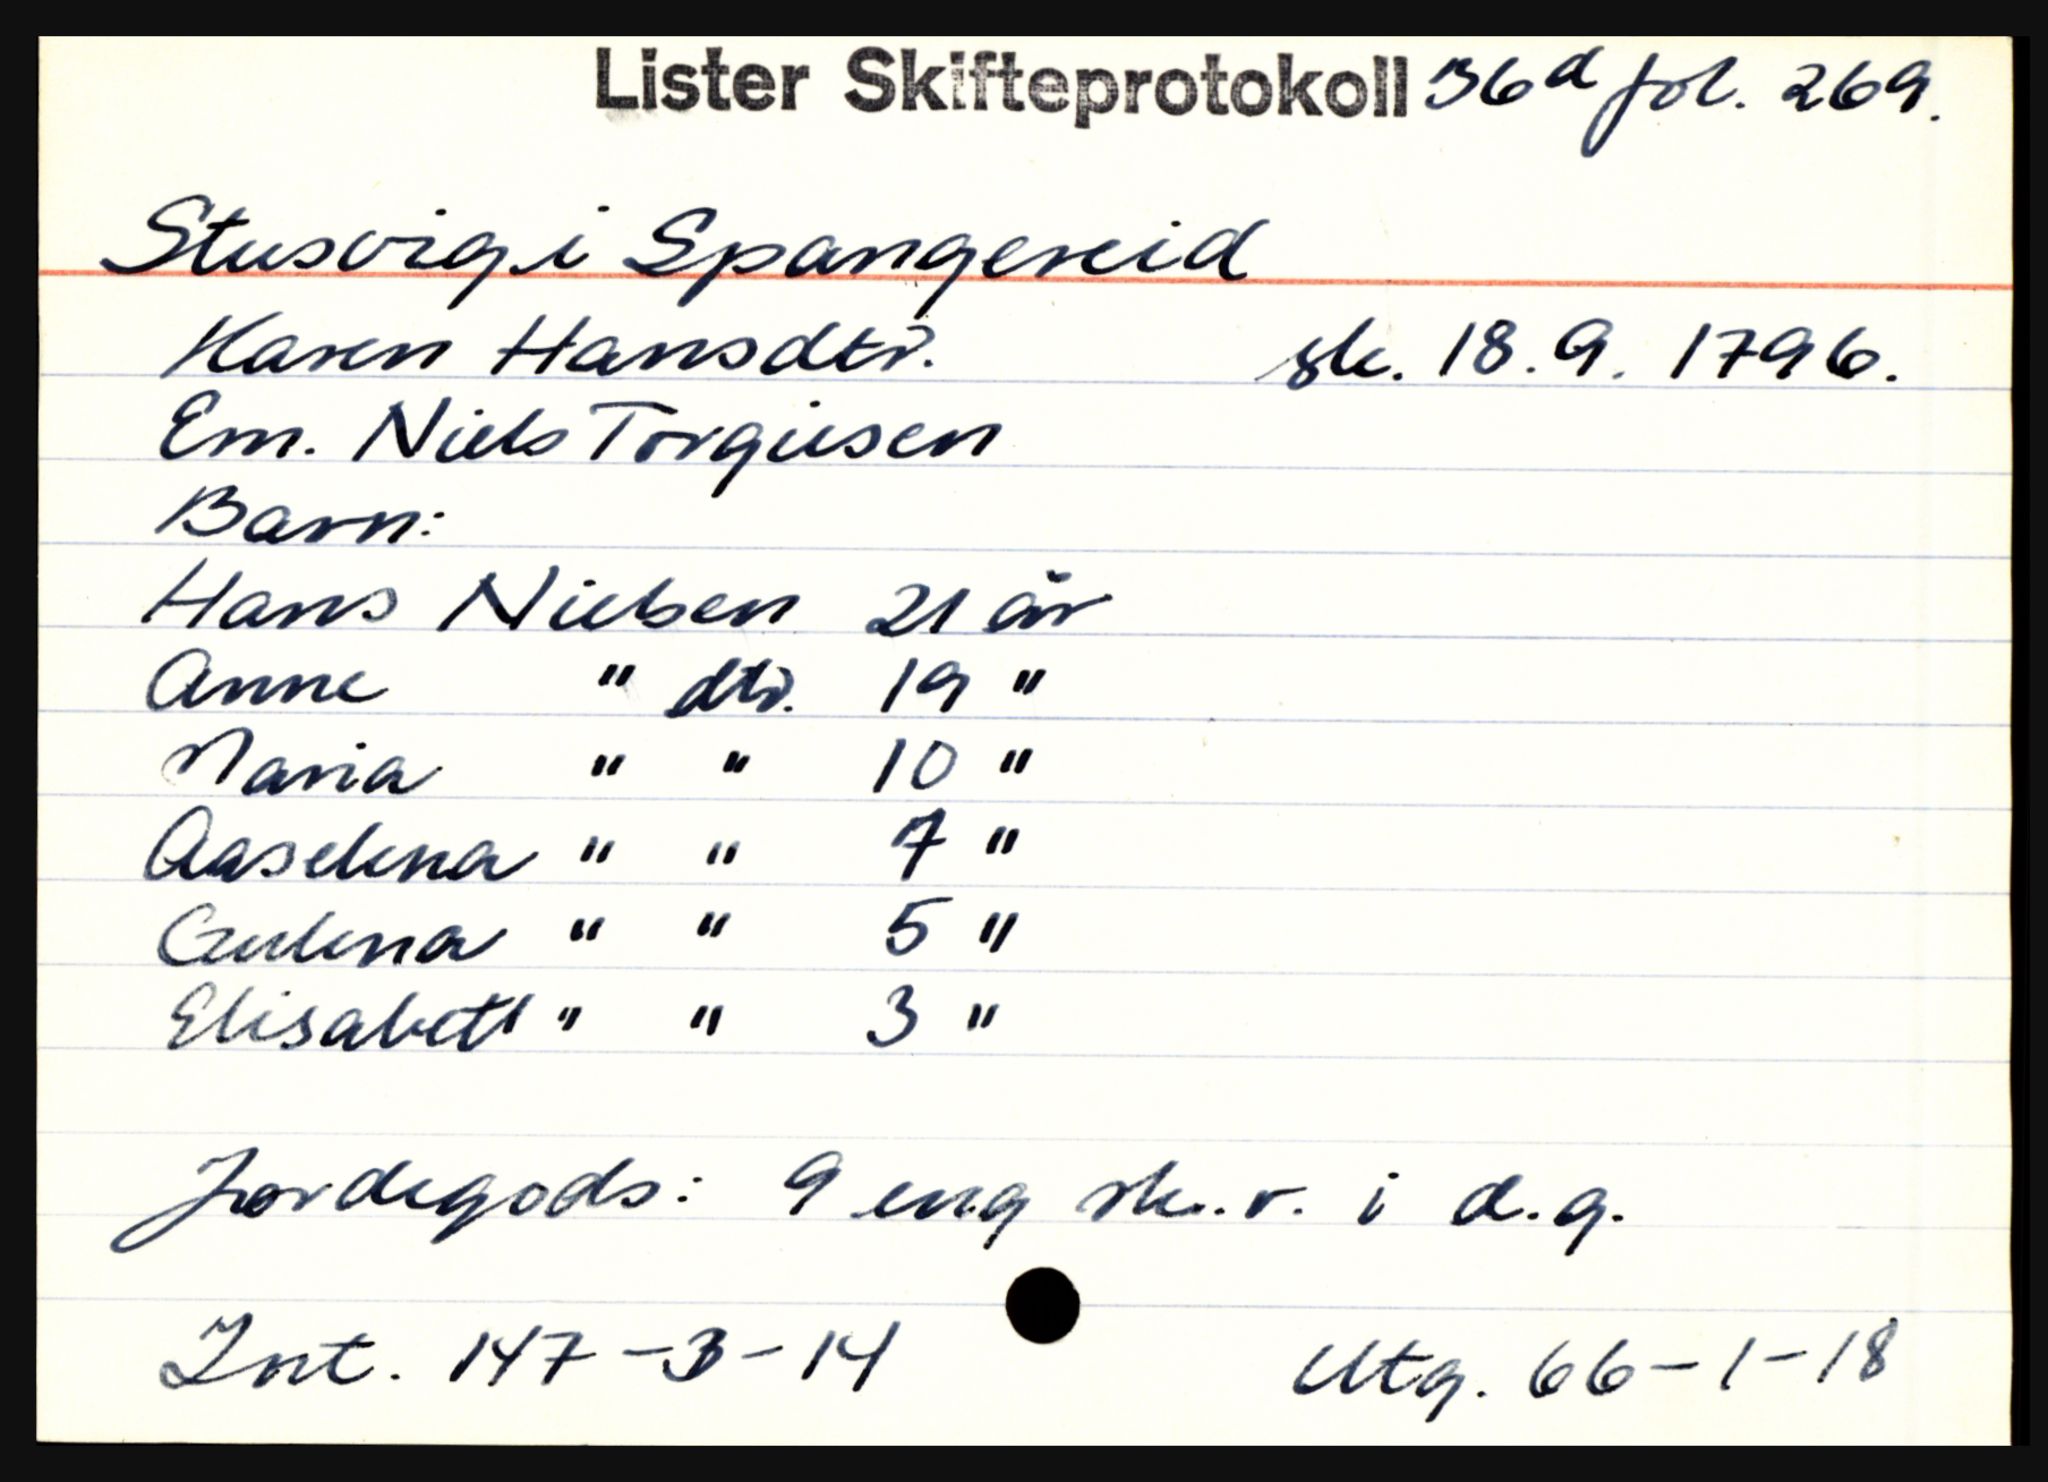 Lister Skifteprotokoll 36d fol. 269.
Stusvig i Spangereid
Karen Hansdtr. sk. 18.9.1796.
Em. Niels Torgiesen
Barn:
Hans Nielsen 21 år
Anne " dtr. 19 "
Maria " " 10 "
Aaselena " " 7 "
Gulena " " 5 "
Elisabett " " 3 "
Jordegods: 9 eng sk.v. i d.g.
Int. 147-3-14 Utg. 66-1-18